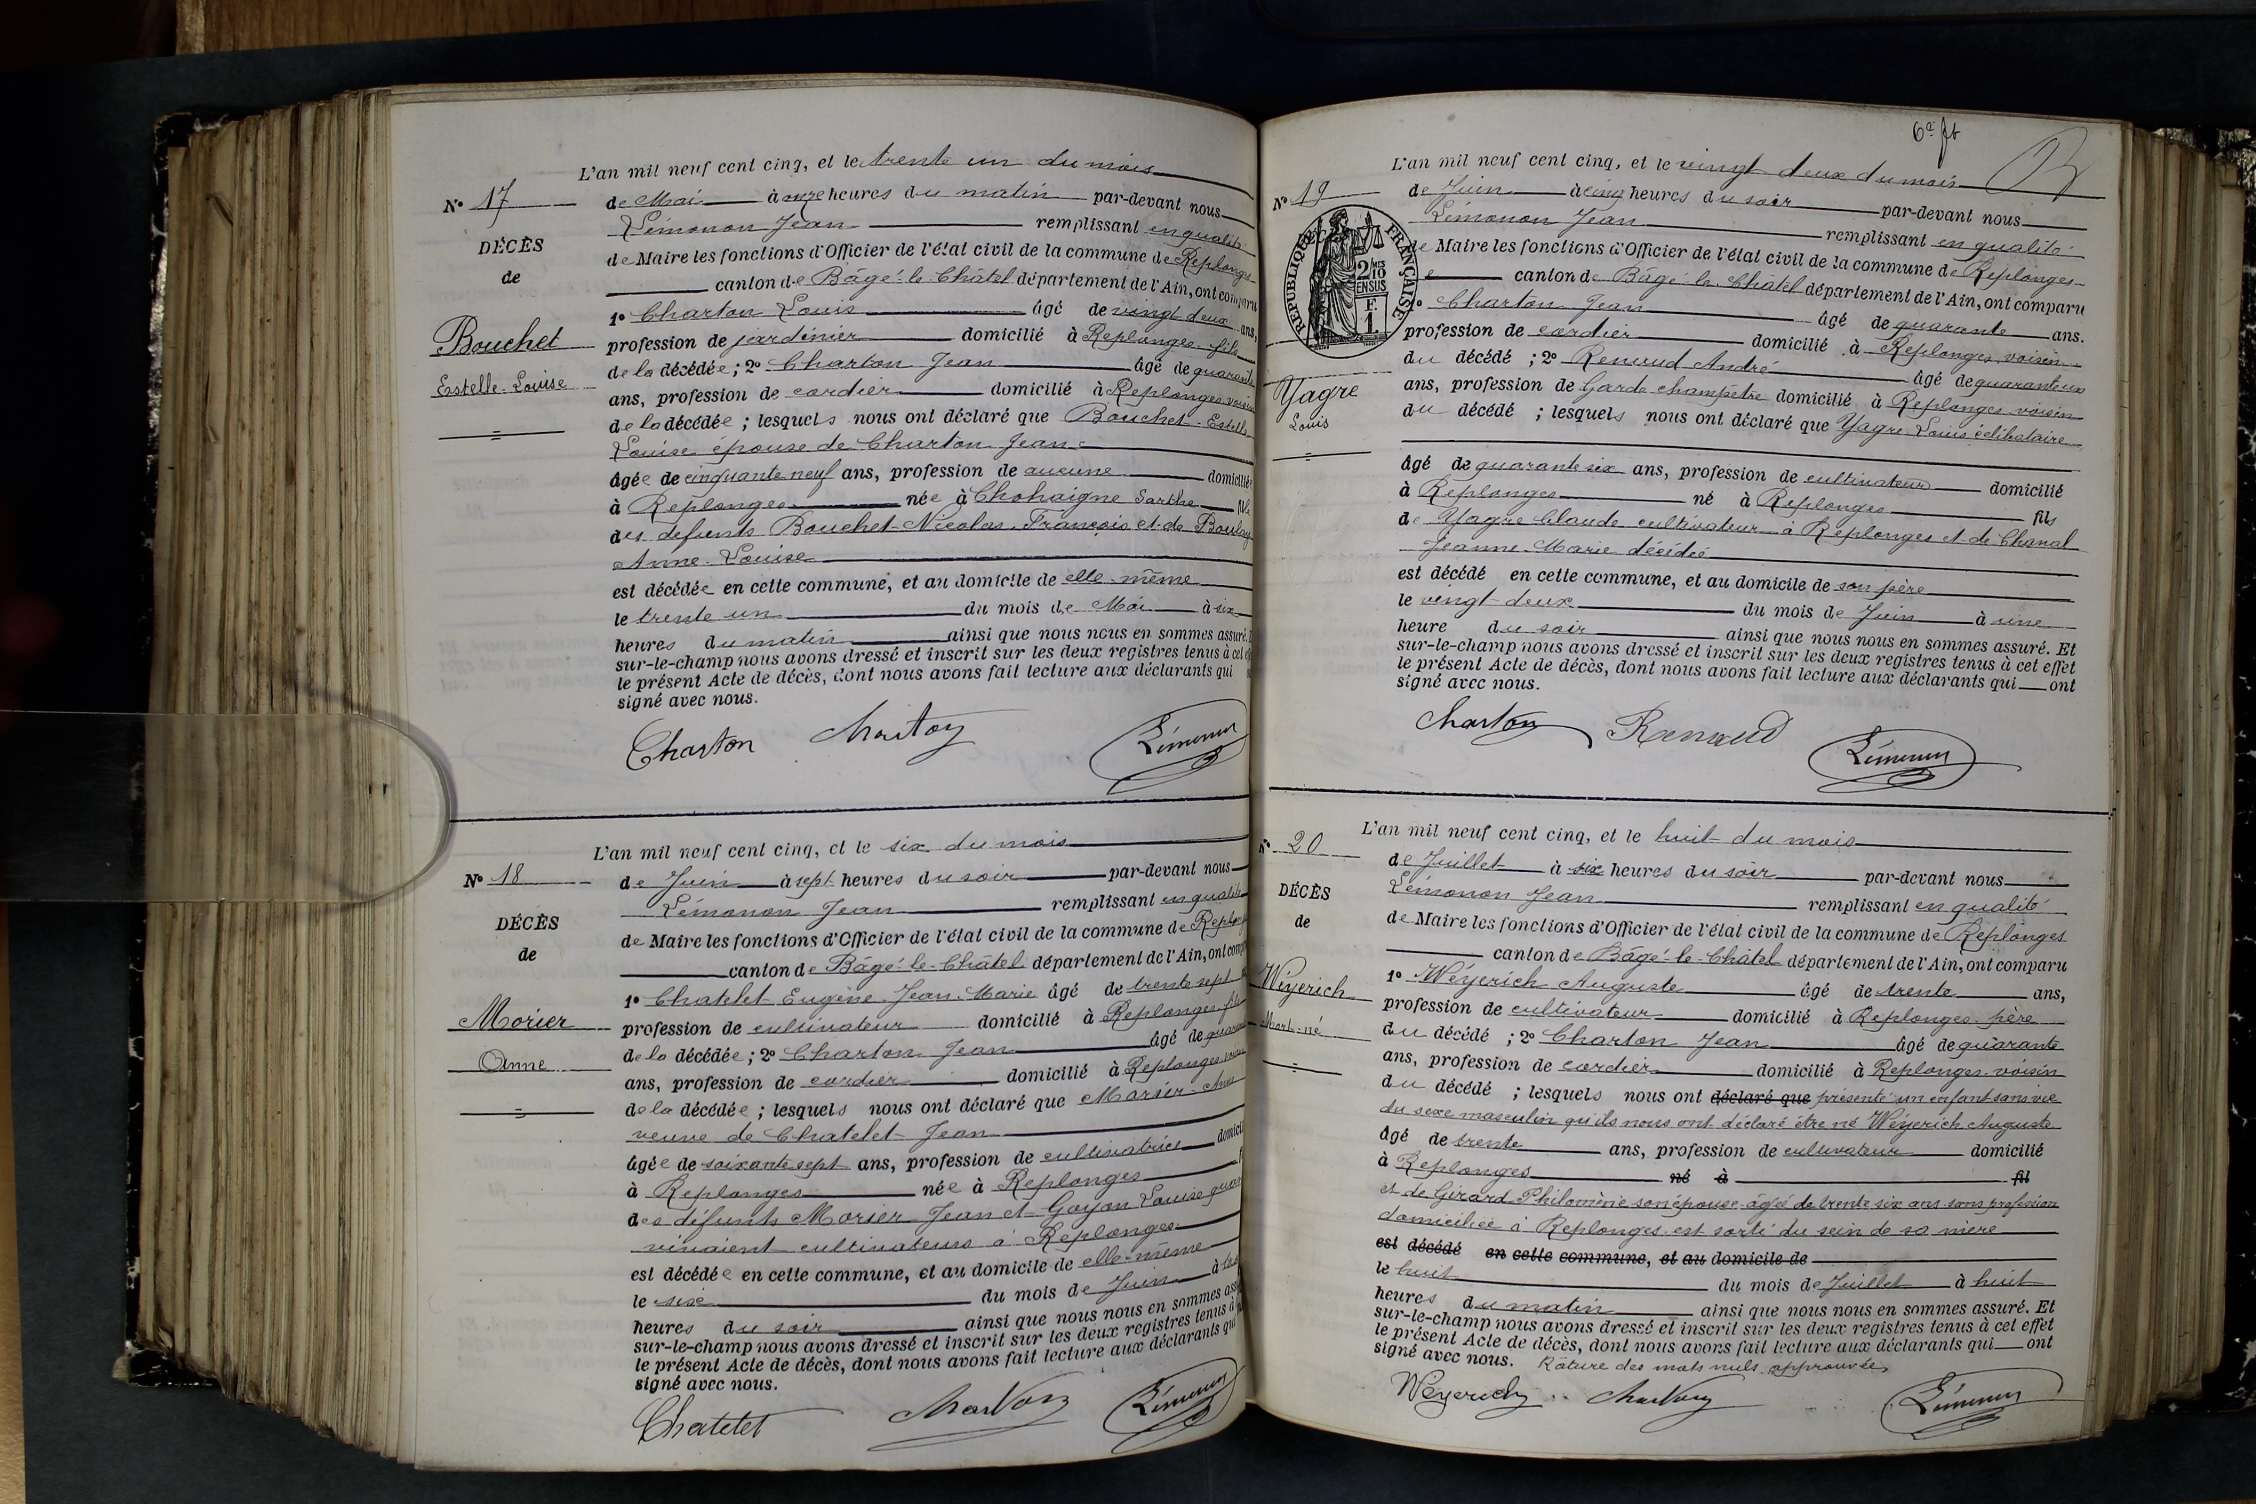 L'an mil neuf cent cinq, et le trente un du mois
Nº 17
de Mai à onze heures du matin par-devant nous
Lémonon Jean remplissant en qualité
DÉCÈS
de Maire les fonctions d'Officier de l'état civil de la commune de Replonges
de
canton de Bâgé-le-Châtel département de l'Ain, ont comparu
1º Charton Louis âgé de vingt deux ans,
Bouchet
profession de jardinier domicilié à Replonges fils
de la décédée ; 2º Charton Jean âgé de quarante
Estelle-Louise
ans, profession de cordier domicilié à Replonges voisin
de la décédée ; lesquels nous ont déclaré que Bouchet Estelle
Louise épouse de Charton Jean
âgée de cinquante neuf ans, profession de aucune domiciliée
à Replonges née à Chohaigne Sarthe fille
des defunts Bouchet Nicolas François et de Boulay
Anne Louise
est décédée en cette commune, et au domicile de elle-même
le trente un du mois de Mai à six
heures du matin ainsi que nous nous en sommes assuré.
sur-le-champ nous avons dressé et inscrit sur les deux registres tenus à cet
le présent Acte de décès, dont nous avons fait lecture aux déclarants qui
signé avec nous.
Charton Charton Lémonon
L'an mil neuf cent cinq, et le six du mois
Nº 18
de Juin à sept heures du soir par-devant nous
Lémonon Jean remplissant en qualité
DÉCÈS
de Maire les fonctions d'Officier de l'état civil de la commune de Replonges
de
canton de Bâgé-le-Châtel département de l'Ain, ont comp
1º Chatelet Eugène Jean-Marie âgé de trente sept
Morier
profession de cultivateur domicilié à Replonges fils
de la décédée ; 2º Charton Jean âgé de quarante
Anne
ans, profession de cordier domicilié à Replonges voisin
de la décédée ; lesquels nous ont déclaré que Morier Anne
veuve de Chatelet Jean
âgée de soixante sept ans, profession de cultivatrice domici
à Replonges née à Replonges
des défunts Morier Jean et Goyon Louise quand
vivaient cultivateurs à Replonges
est décédée en cette commune, et au domicile de elle-même
le six du mois de Juin à
heures du soir ainsi que nous nous en sommes ass
sur-le-champ nous avons dressé et inscrit sur les deux registres tenus à
le présent Acte de décès, dont nous avons fait lecture aux déclarants qui
signé avec nous.
Chatelet Charton Lémonon
6e ft
L'an mil neuf cent cinq, et le vingt deux du mois
Nº 19
de Juin à cinq heures du soir par-devant nous
Lémonon Jean remplissant en qualité
RÉPUBLIQUE FRANÇAISE
2/10 EN SUS
F. 1.
de Maire les fonctions d'Officier de l'état civil de la commune de Replonges
canton de Bâgé-le-Châtel département de l'Ain, ont comparu
1º Charton Jean âgé de quarante ans.
profession de cordier domicilié à Replonges voisin
du décédé ; 2º Renaud André âgé de quarante un
Yagre
Louis
ans, profession de Garde champêtre domicilié à Replonges voisin
du décédé ; lesquels nous ont déclaré que Yagre Louis célibataire
âgé de quarante six ans, profession de cultivateur domicilié
à Replonges né à Replonges fils
de Yagre Claude cultivateur à Replonges et de Chanal
Jeanne-Marie décédée
est décédé en cette commune, et au domicile de son père
le vingt deux du mois de Juin à une
heure du soir ainsi que nous nous en sommes assuré. Et
sur-le-champ nous avons dressé et inscrit sur les deux registres tenus à cet effet
le présent Acte de décès, dont nous avons fait lecture aux déclarants qui ont
signé avec nous.
Charton Renaud Lémonon
L'an mil neuf cent cinq, et le huit du mois
Nº 20
de Juillet à six heures du soir par-devant nous
Lémonon Jean remplissant en qualité
DÉCÈS
de Maire les fonctions d'Officier de l'état civil de la commune de Replonges
de
canton de Bâgé-le-Châtel département de l'Ain, ont comparu
1º Wéyerich Auguste âgé de trente ans,
Wéyerich
profession de cultivateur domicilié à Replonges père
Mort-né
du décédé ; 2º Charton Jean âgé de quarante
ans, profession de cordier domicilié à Replonges voisin
du décédé ; lesquels nous ont déclaré que présenté un enfant sans vie
du sexe masculin qu'ils nous ont déclaré être né Wéyerich Auguste
âgé de trente ans, profession de cultivateur domicilié
à Replonges né à fil
et de Girard Philomène son épouse âgée de trente six ans sans profession
domiciliée à Replonges est sorti du sein de sa mère
est décédé en cette commune, et au domicile de
le huit du mois de Juillet à huit
heures du matin ainsi que nous nous en sommes assuré. Et
sur-le-champ nous avons dressé et inscrit sur les deux registres tenus à cet effet
le présent Acte de décès, dont nous avons fait lecture aux déclarants qui ont
signé avec nous. Rature des mots nuls approuvée
Weyerich Charton Lémonon